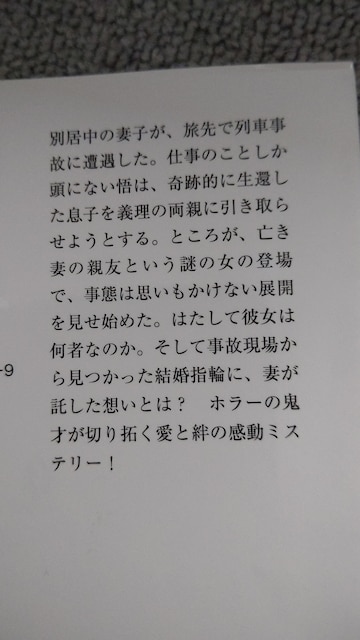 別居中の妻子が、旅先で列車事
故に遭遇した。仕事のことしか
頭にない悟は、奇跡的に生還し
た息子を義理の両親に引き取ら
せようとする。ところが、亡き
妻の親友という謎の女の登場
で、事態は思いもかけない展開
を見せ始めた。はたして彼女は
何者なのか。そして事故現場か
ら見つかった結婚指輪に、妻が
託した想いとは？　ホラーの鬼
才が切り拓く愛と絆の感動ミス
テリー！
-9